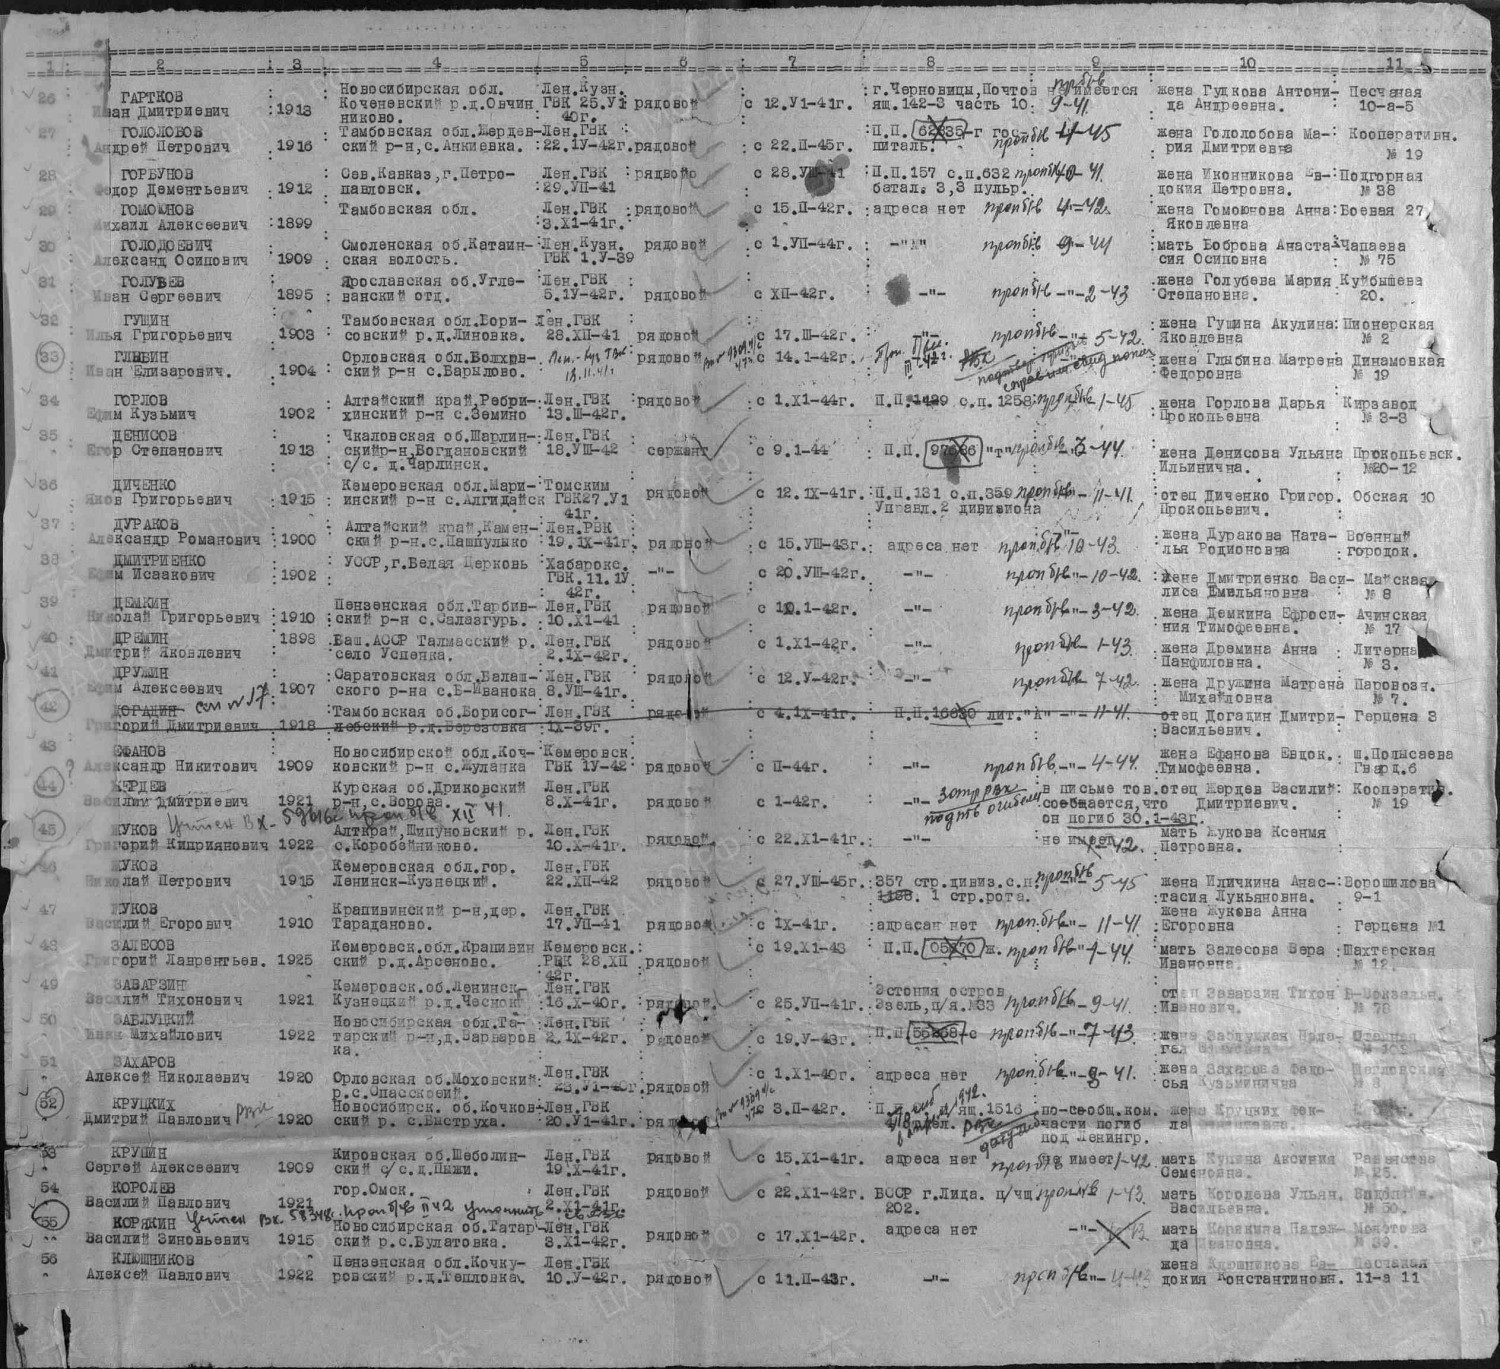 1 : 2 : 3 : 4 : 5 : 6 : 7 : 8 : 9 10 11
26 ГАРТКОВ Новосибирская обл. Лен.Кузн. г.Черновицы,Почтов не имеется жена Гудкова Антони- Песчаная
Иван Дмитриевич 1913 Коченевский р.д.Овчин ГВК 25.У1 рядовой с 12.У1-41г. ящ.142-3 часть 10. проп б/в 9-41. да Андреевна. 10-а-5
никово. 40г.
27 ГОЛОЛОБОВ Тамбовская обл.Жердев- Лен.ГВК П.П. 62335-г гос- жена Гололобова Ма- Кооперативн.
Андрей Петрович 1916 ский р-н,с.Анкиевка. 22.1У-42г. рядовой с 22.П-45г. питаль. проп б/в 4-45 рия Дмитриевна № 19
28 ГОРБУНОВ Сев.Кавказ,г.Петро- Лен.ГВК рядовой с 28.УШ-41 П.П.157 с.п.632 проп б/в 10-41. жена Иконникова Ев- Подгорная
Федор Дементьевич 1912 павловск. 29.УП-41 батал. 3,3 пульр. докия Петровна. № 38
29 ГОМОЮНОВ Тамбовская обл. Лен.ГВК рядовой с 15.П-42г. адреса нет проп б/в 4-42. жена Гомоюнова Анна Боевая 27
Михаил Алексеевич 1899 3.Х1-41г. Яковлевна
30 ГОЛОДОЕВИЧ Смоленская об.Катаин- Лен.Кузн. рядовой с 1.УП-44г. -"- проп б/в 9-44 мать Боброва Анаста- Чапаева
Александ Осипович 1909 ская волость. ГВК 1.У-39 сия Осиповна № 75
31 ГОЛУБЕВ Ярославская об.Угле- Лен.ГВК жена Голубева Мария Куйбышева
Иван Сергеевич 1895 ванский отд. 5.1У-42г. рядовой с ХП-42г. -"- проп б/в -"- 2-43 Степановна. 20.
32 ГУЩИН Тамбовская обл.Бори- Лен.ГВК жена Гущина Акулина Пионерская
Илья Григорьевич 1903 совский р.д.Линовка. 28.ХП-41 рядовой с 17.Ш-42г. -"- проп б/в -"- 5-42. Яковлевна № 2
33 ГЛЫБИН Орловская обл.Волхов- рядовой с 14.1-42г. жена Глыбина Матрена Динамовкая
Иван Елизарович. 1904 ский р-н с.Барылово. 18.11.41г. Федоровна № 19
34 ГОРЛОВ Алтайский край,Ребри- Лен.ГВК рядовой с 1.Х1-44г. П.П.1429 с.п.1258 проп б/в 1-45 жена Горлова Дарья Кирзавод
Ефим Кузьмич 1902 хинский р-н с.Земино 13.Ш-42г. Прокопьевна № 3-3
35 ДЕНИСОВ Чкаловская об.Шарлин- Лен.ГВК
Егор Степанович 1913 скийр-н,Богдановский 18.УШ-42 сержант с 9.1-44 П.П. 97586 "т" проп б/в 3-44. жена Денисова Ульяна Прокопьевск.
с/с. д.Чарлинск. Ильинична. №20-12
36 ДИЧЕНКО Кемеровская обл.Мари- Томским
Яков Григорьевич 1915 инский р-н с.Алгидайск ГВК27.У1 рядовой с 12.1Х-41г. П.П.131 с.п.359 проп б/в -11-41. отец Диченко Григор. Обская 10
41г. Управл.2 дивизиона Прокопьевич.
37 ДУРАКОВ Алтайский край,Камен- Лен.РВК
Александр Романович 1900 ский р-н.с.Пашпулько 19.1Х-41г. рядовой с 15.УШ-43г. адреса нет проп б/в 10-43. жена Дуракова Ната- Военный
лья Родионовна городок.
38 ДМИТРИЕНКО УССР,г.Белая Церковь Хабаровс.
Ефим Исаакович 1902 ГВК.11.1У -"- с 20.УШ-42г. -"- проп б/в -"- 10-42. жене Дмитриенко Васи- Майская
42г. лиса Емильяновна № 8
39 ДЕМКИН Пензенская обл.Тарбив- Лен.ГВК
Николай Григорьевич 1910 ский р-н с.Салазгурь. 10.Х1-41 рядовой с 10.1-42г. -"- проп б/в -"- 3-42. жена Демкина Ефроси- Ачинская
ния Тимофеевна. № 17
40 ДРЕМИН 1898 Баш.АССР Талмасский р. Лен.ГВК рядовой с 1.Х1-42г. -"- проп б/в 1-43 жена Дремина Анна Литерна
Дмитрий Яковлевич село Успенка. 2.1Х-42г. Панфиловна. № 3.
41 ДРУЖИН Саратовская обл.Балаш- Лен.ГВК рядовой с 12.У-42г. -"- проп б/в 7-42. жена Дружина Матрена Паровозн.
Ефим Алексеевич 1907 ского р-на с.Б-Иванока 8.УШ-41г. Михайловна № 7.
42 ДОГАДИН см № 17. Тамбовская об.Борисог- Лен.ГВК рядовой с 4.1Х-41г. П.П.16630 лит."А" -"- 11-41. отец Догадин Дмитри- Герцена 3
Григорий Дмитриевич 1918 лебский р.д.Березовка 1Х-39г. Васильевич.
43 ЕФАНОВ Новосибирской обл.Коч- Кемеровск жена Ефанова Евдок. ш.Полысаева
Александр Никитович 1909 ковский р-н с.Жуланка ГВК 1У-42 рядовой с П-44г. -"- проп б/в -"- 4-44 Тимофеевна. Гвард.6
44 ? ЖЕРДЕВ Курская об.Дриковский Лен.ГВК в письме тов. отец Жердев Василий Кооператив.
Василий Дмитриевич 1921 р-н,с.Ворова. 8.Х-41г. рядовой с 1-42г. -"- сообщается,что Дмитриевич. № 19
учтен вх-59616с проп б/в XII 41. он погиб 30.1-43г.
45 ЖУКОВ Алткрай,Шипуновский р. Лен.ГВК мать Жукова Ксения
Григорий Киприянович 1922 с.Коробейниково. 10.Х-41г. рядовой с 22.Х1-41г. -"- не имеет -42. Петровна.
46 ЖУКОВ Кемеровская обл.гор. Лен.ГВК
Николай Петрович 1915 Ленинск-Кузнецкий. 22.ХП-42 рядовой с 27.УШ-45г. 357 стр.дивиз.с.п. проп б/в 5-45 жена Иличкина Анас- Ворошилова
1188. 1 стр.рота. тасия Лукьяновна. 9-1
47 ЖУКОВ Крапивинский р-н,дер. Лен.ГВК жена Жукова Анна
Василий Егорович 1910 Тараданово. 17.УП-41 рядовой с 1Х-41г. адресан нет проп б/в -"- 11-41 Егоровна Герцена №1
48 ЗАЛЕСОВ Кемеровск.обл.Крапивин Кемеровск. с 19.Х1-43 П.П. 05270 ж. проп б/в -"- 4-44 мать Залесова Вера Шахтерская
Григорий Лаврентьев. 1925 ский р.д.Арсеново. РВК 28.ХП рядовой Ивановна. № 12.
42г.
49 ЗАВАРЗИН Кемеровск.об.Ленинск- Лен.ГВК Эстония остров отец Заварзин Тихон В-Вокзальн.
Василий Тихонович 1921 Кузнецкий р.д.Чеснок 16.Х-40г. рядовой. с 25.Уп-41г. Эзель,п/я.№33 проп б/в -9-41. Иванович. № 78
50 ЗАБЛУЦКИЙ Новосибирская обл.Та- Лен.ГВК
Иван Михайлович 1922 тарский р-н,д.Варваров 2.1Х-42г. рядовой с 19.У-43г. П.П 55258-с проп б/в -"- 7-43. жена Заблуцкая
ка.
51 ЗАХАРОВ
Алексей Николаевич 1920 Орловская об.Моховский Лен.ГВК с 1.Х1-40г. адреса нет проп б/в -9-41. жена Захарова Федо-
р.с.Опасскоей. 23.У1-40г. рядовой сья Кузьминична № 8
52 КРУЦКИХ рвк Новосибирск. об.Кочков- Лен.ГВК с 3.П-42г. ящ.1516 по-сообщ.ком. жена Круцких
Дмитрий Павлович 1920 ский р. с.Быструха. 20.У1-41г. части погиб
под Ленингр.
53 КРУПИН Кировская об.Шеболин- Лен.ГВК рядовой с 15.Х1-41г. адреса нет не имеет 1-42. мать Купина Аксиния
Сергей Алексеевич 1909 ский с/с.д.Пыжи. 19.Х-41г. проп б/в Семеновна. № 25.
54 КОРОЛЕВ гор.Омск. Лен.ГВК рядовой с 22.Х1-42г. БССР г.Лида. п/чщ проп б/в 1-43. мать Королева Ульян.
Василий Павлович 1921 2.Х1-41г. 202. Васильевна. № 50.
55 КОРЯКИН учтен вх. 58348с. проп б/в II 42
Василий Зиновьевич 1915 Новосибирская об.Татар- Лен.ГВК рядовой с 17.Х1-42г. адреса нет -"- мать Корякина Надеж- Молотова
ский р.с.Булатовка. 3.Х1-42г. да Ивановна. № 39.
56 КЛЮШНИКОВ Пензенская обл.Кочку- Лен.ГВК жена Клюшникова Ев- Песчаная
Алексей Павлович 1922 ровский р.д.Тепловка. 10.У-42г. рядовой с 11.П-43г. -"- проп б/в -"- 4-43 докия Константиновн. 11-а 11